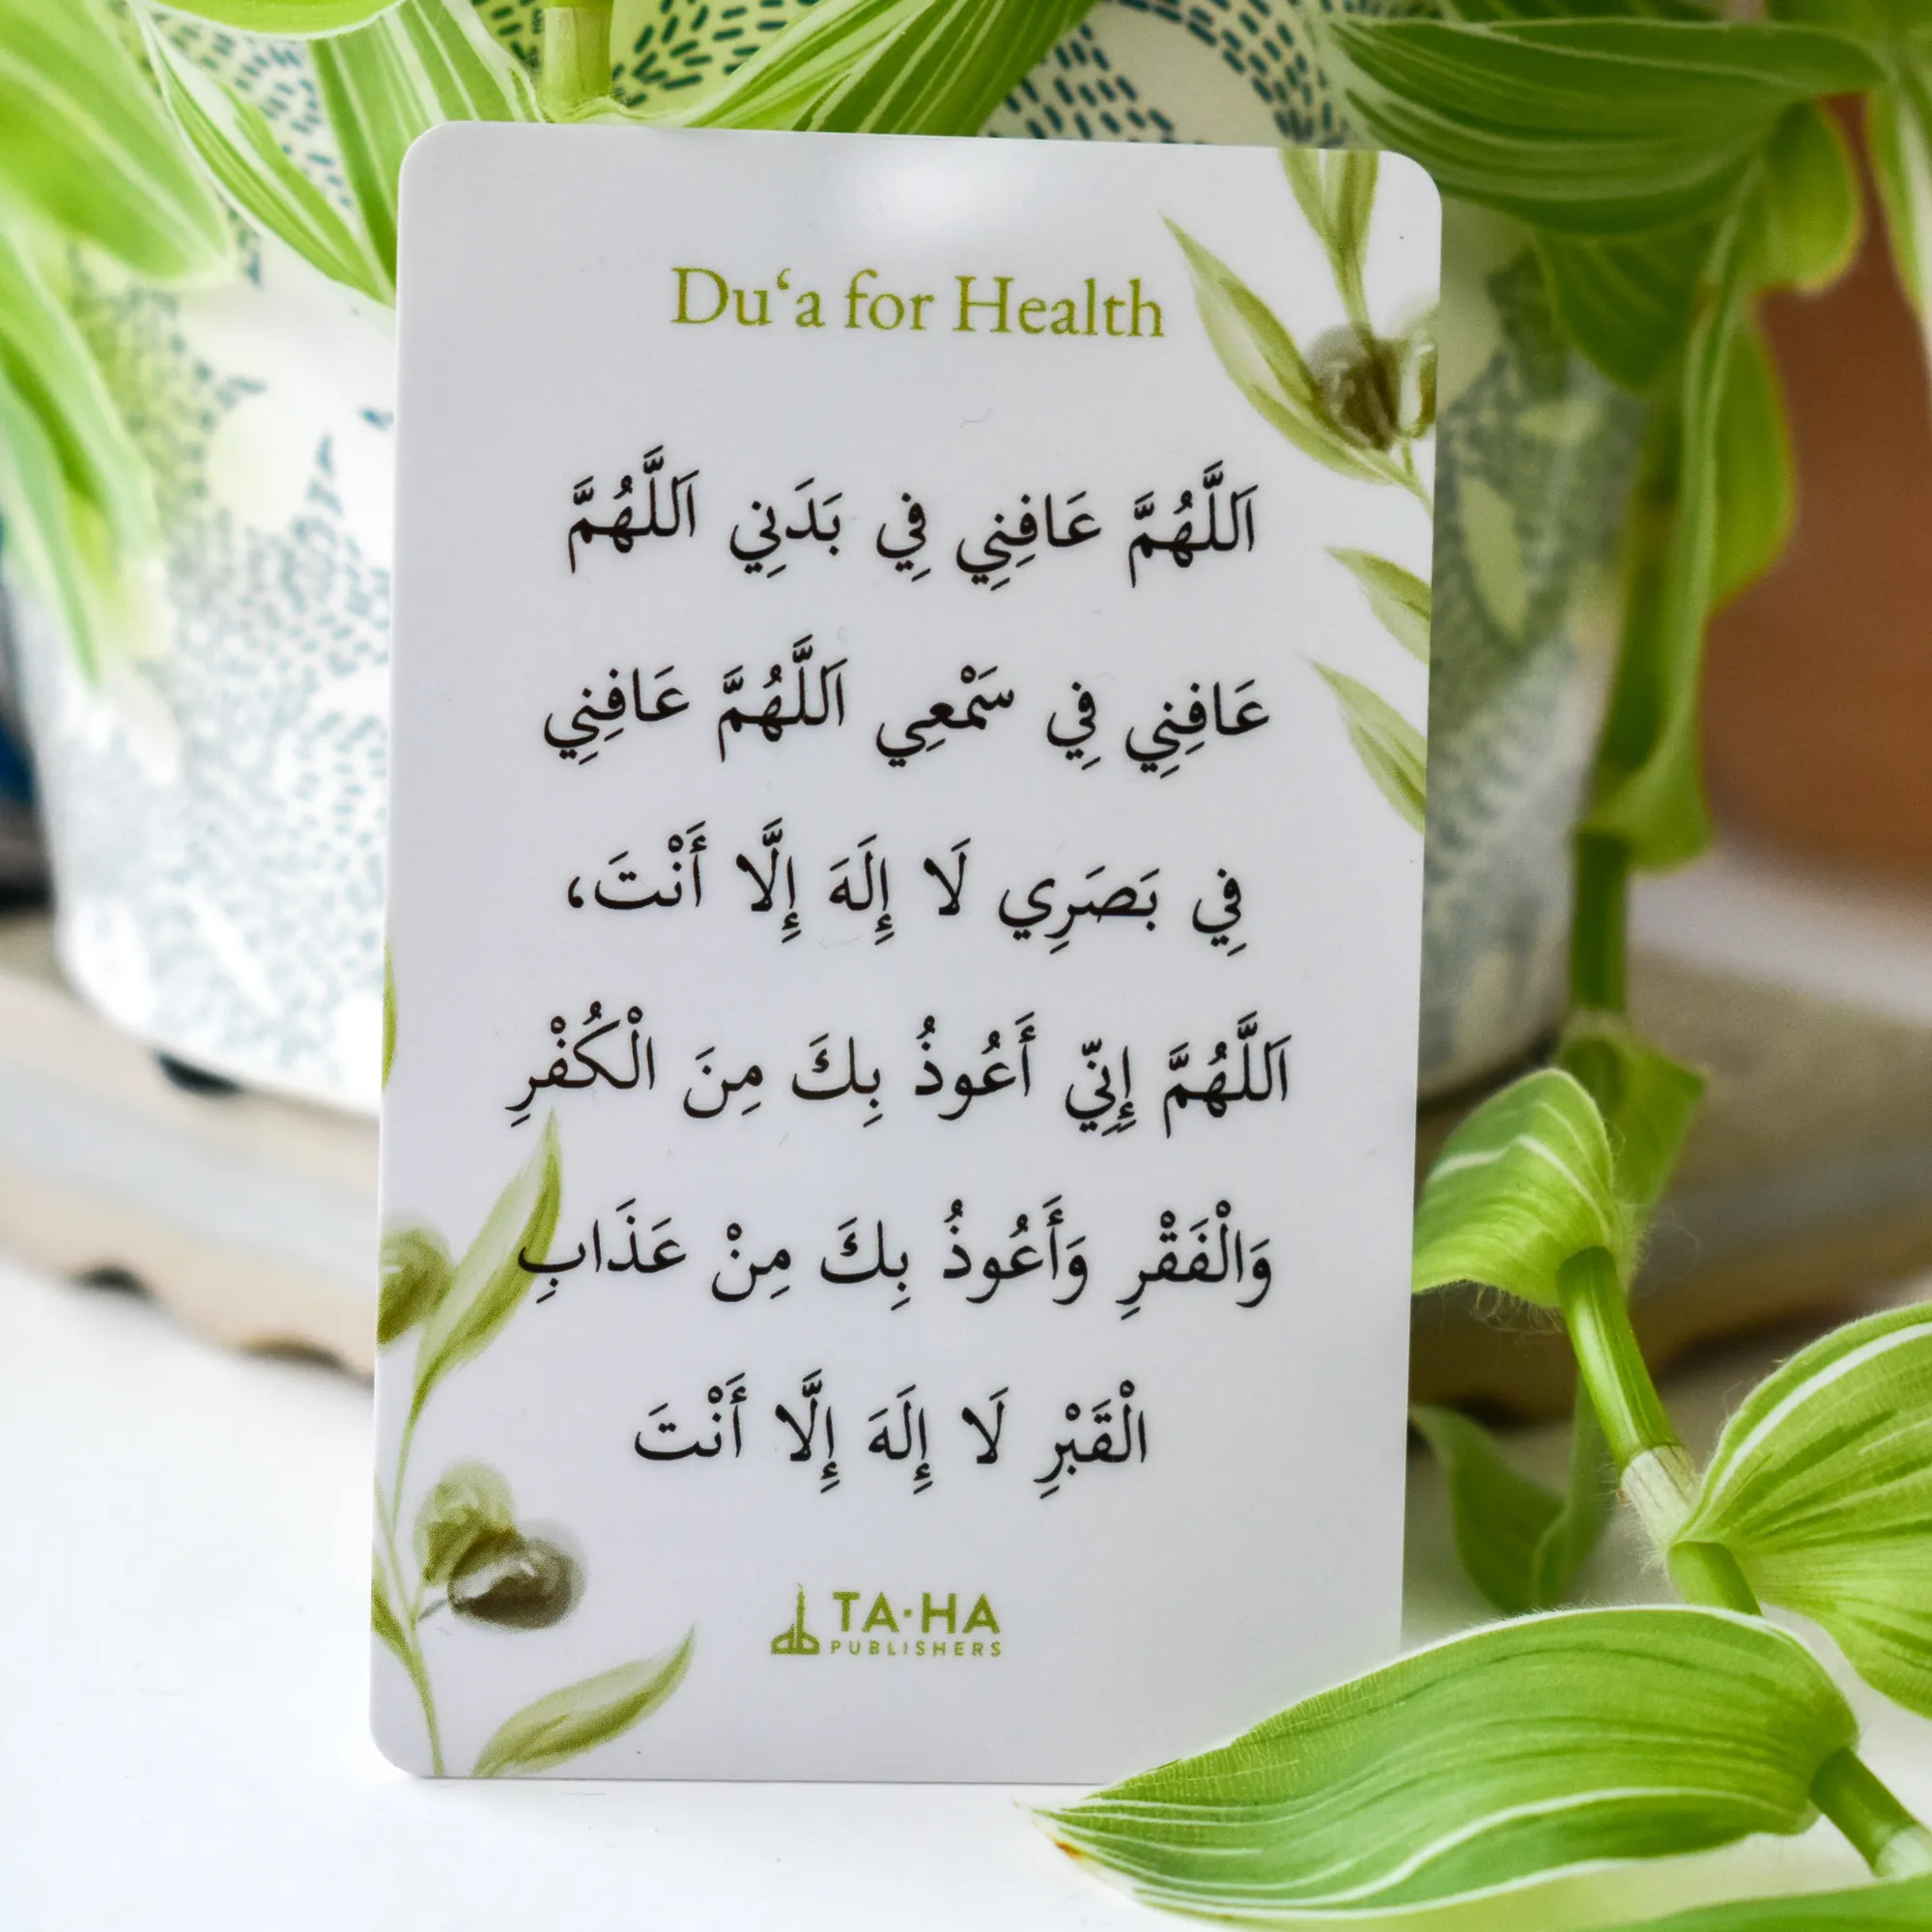 Du‘a for Health
اَللَّهُمَّ عَافِنِي فِي بَدَنِي اَللَّهُمَّ
عَافِنِي فِي سَمْعِي اَللَّهُمَّ عَافِنِي
فِي بَصَرِي لَا إِلَهَ إِلَّا أَنْتَ،
اَللَّهُمَّ إِنِّي أَعُوذُ بِكَ مِنَ الْكُفْرِ
وَالْفَقْرِ وَأَعُوذُ بِكَ مِنْ عَذَابِ
الْقَبْرِ لَا إِلَهَ إِلَّا أَنْتَ
TA·HA
PUBLISHERS